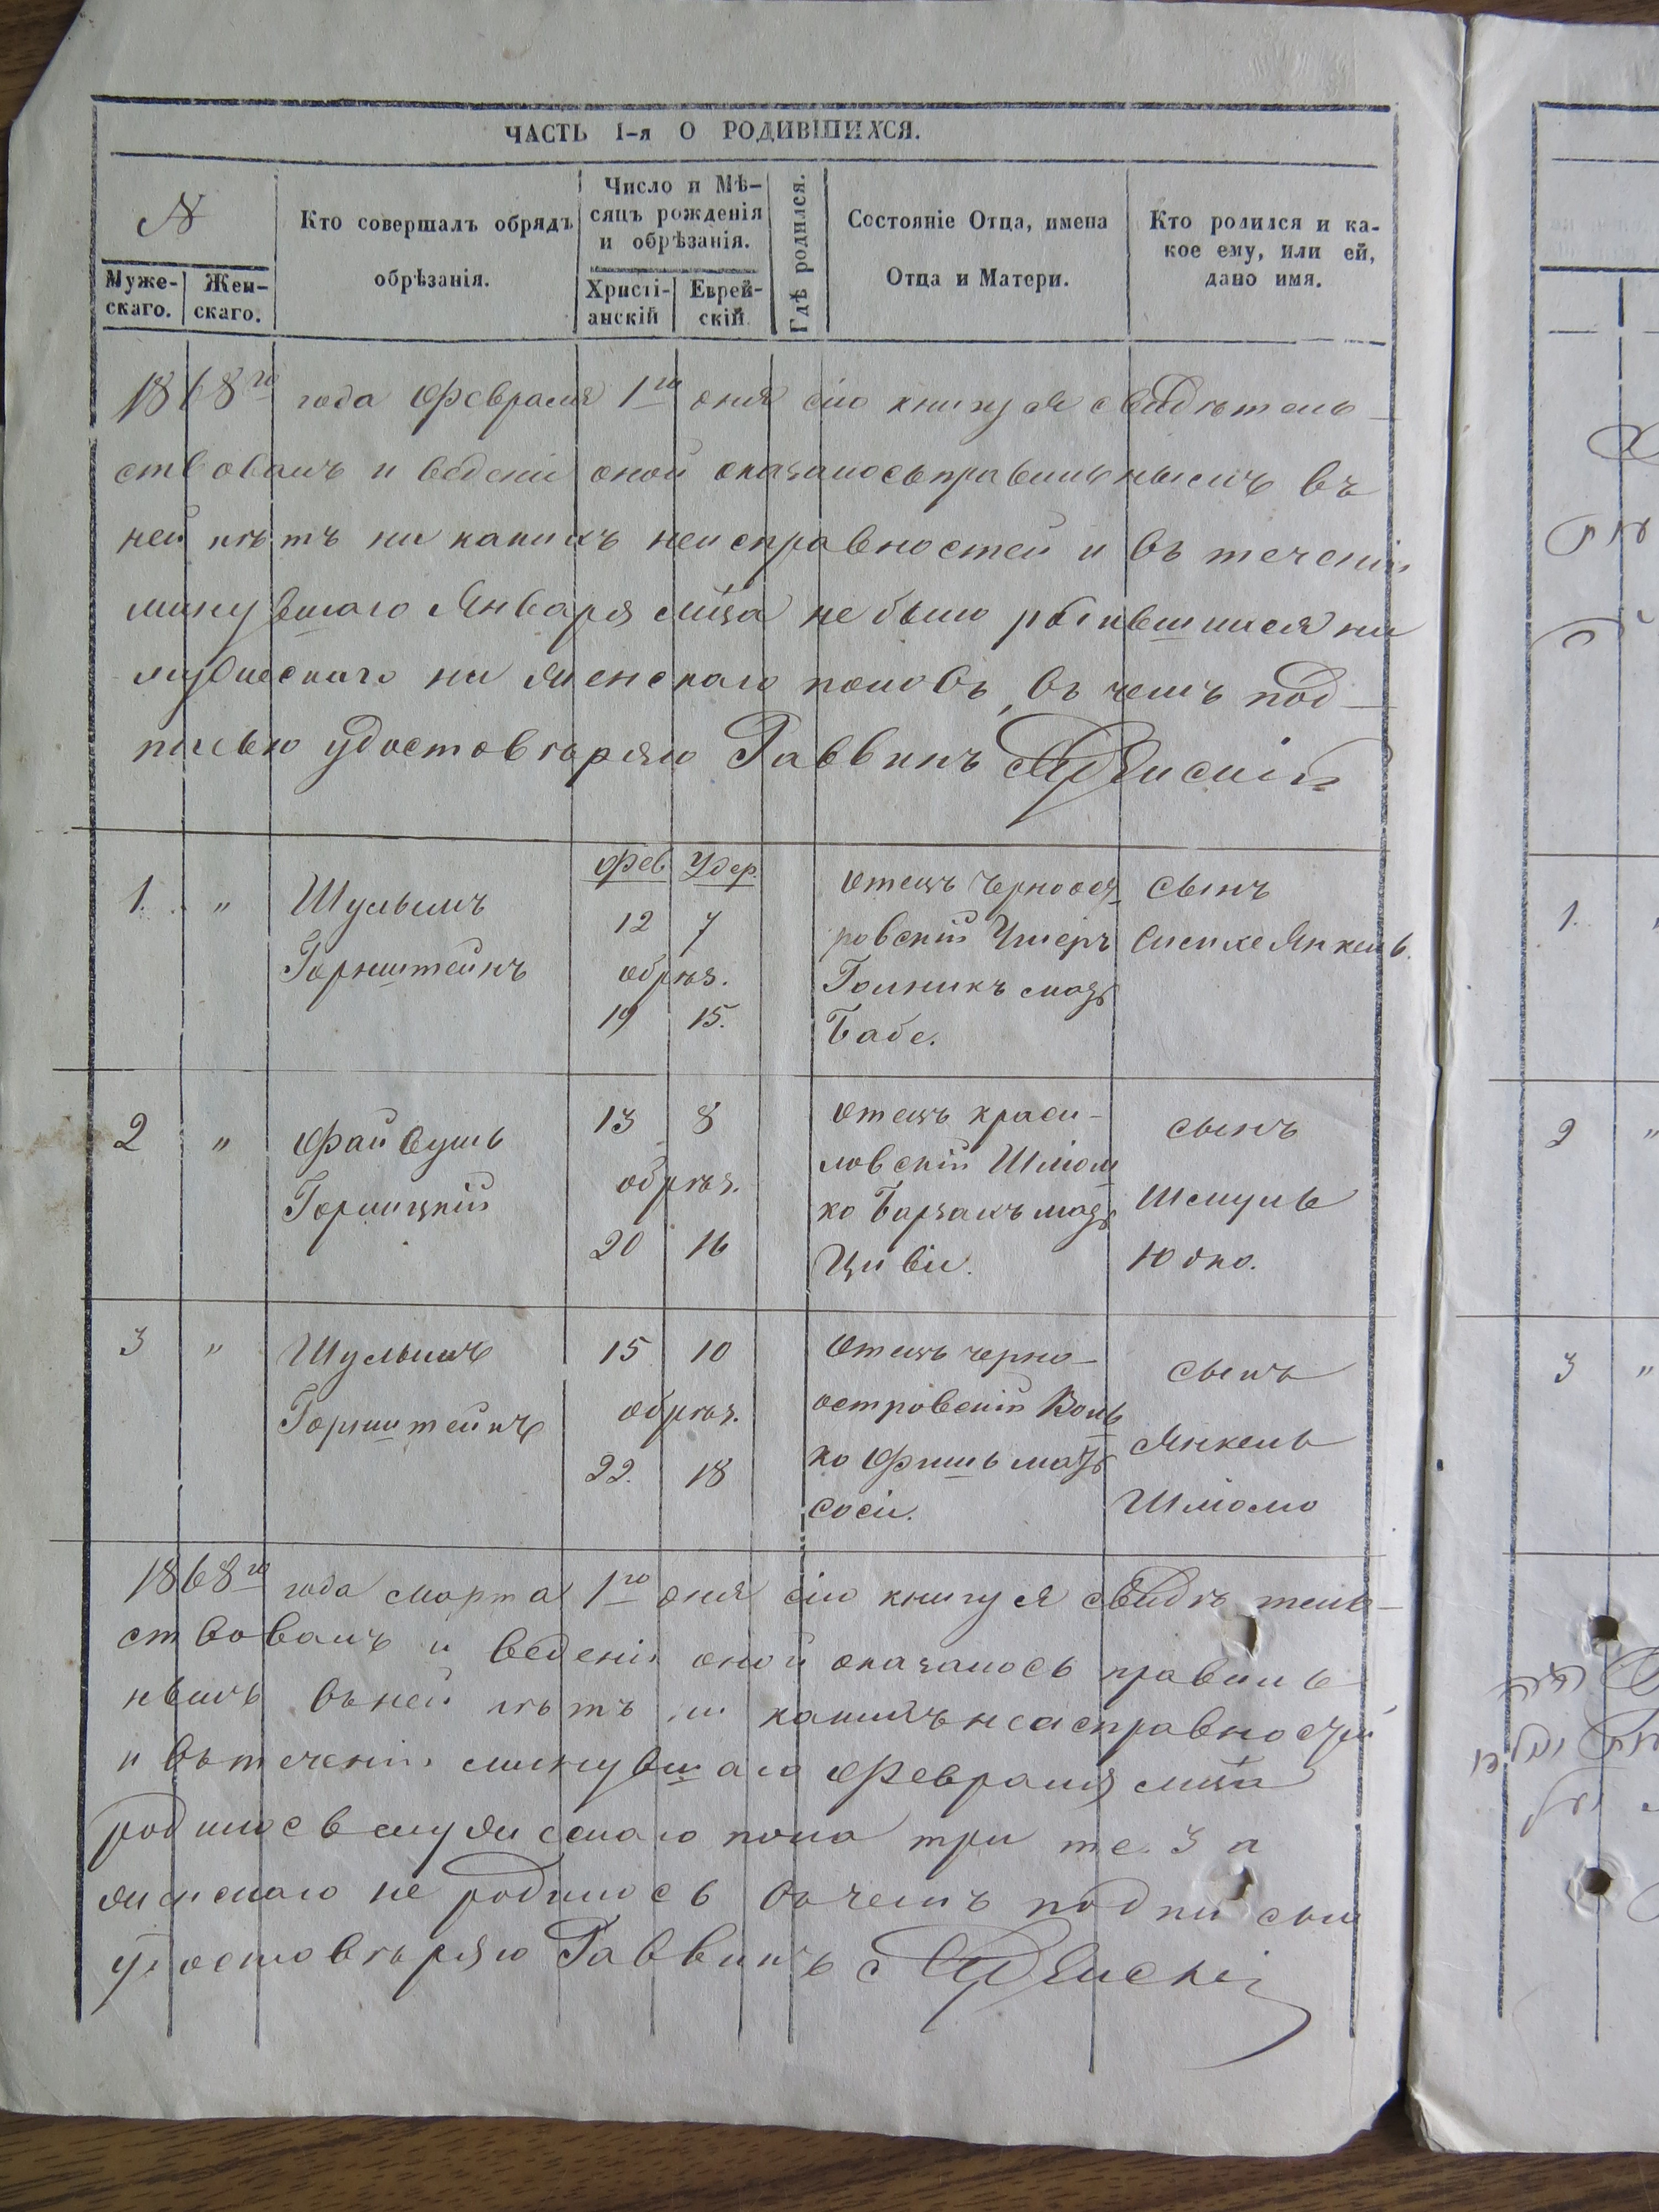 ЧАСТЬ I-я О РОДИВШИХСЯ.
№
Муже-
скаго.
Жен-
скаго.
Кто совершалъ обрядъ
обрѣзанія.
Число и Мѣ-
сяцъ рожденія
и обрѣзанія.
Христі-
анскій
Еврей-
скій
Гдѣ родился.
Состояніе Отца, имена
Отца и Матери.
Кто родился и ка-
кое ему, или ей,
дано имя.
1868го года Февраля 1го дня сію книгу я свидѣтель-
ствовалъ и веденіи оной оказалось правильнымъ въ
ней нѣтъ ни какихъ неисправностей и въ теченіи
минувшаго Января мца не было родившихся ни
мужескаго ни женскаго половъ, въ чемъ под-
писью удостовѣряю Раввинъ
1. " Шулымъ Горнштейнъ
Фев. Удер.
12 7
обрѣз.
19 15.
Отецъ Черноост-
ровскій
Голникъ мать
Бабе.
сынъ
Янкель.
2 " Файвушъ
13 8
обрѣз.
20 16
Отецъ краси-
ловскій Шлiом
ко мать
Циви.
сынъ
Шмуль
Юдко.
3 " Шулымъ
Горнштейнъ
15 10
обрѣз.
22. 18
Отецъ черно-
островскій Воль
ко Фишъ мать
Соси.
сынъ
Янкель
Шлiомо
1868го года марта 1го дня сію книгу я свидѣтель-
ствовалъ и веденіи оной оказалось правиль
нымъ въ ней нѣтъ ни какихъ неисправностей
и въ теченіи минувшаго Февраля мца
родилось мужескаго пола три т.е. 3 а
женскаго не родилось въ чемъ подписью
удостовѣряю Раввинъ
1.
2 "
3 "